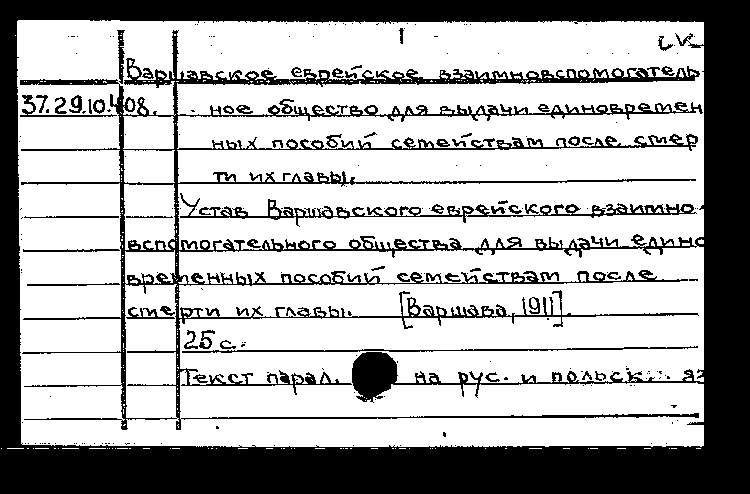 СК
Варшавское еврейское взаимновспомогатель-
37.29.10.408. ное общество для выдачи единовремен
ных пособий семействам после смер
ти их главы.
Устав Варшавского еврейского взаимно-
вспомогательного общества для выдачи едино
временных пособий семействам после
смерти их главы. [Варшава, 1911].
25 с.
Текст парал. на рус. и польск. яз